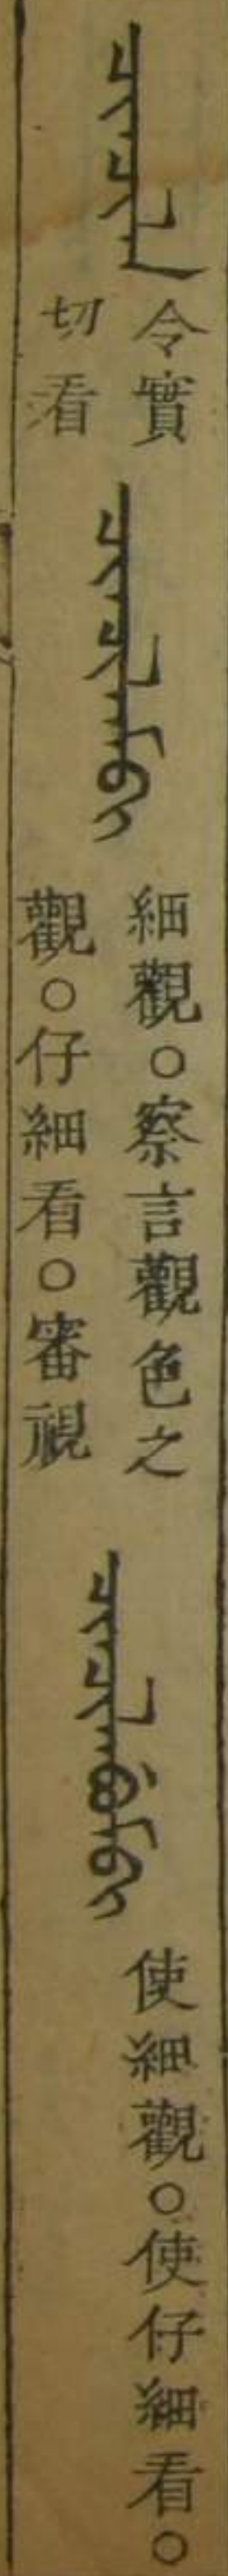 ᠴᡳᠨᠴᡳᠯᠠ
令實
切看
ᠴᡳᠨᠴᡳᠯᠠᠮᠪᡳ
細觀○察言觀色之
觀○仔細看○審視
ᠴᡳᠨᠴᡳᠯᠠᠪᡠᠮᠪᡳ
使細觀○使仔細看○